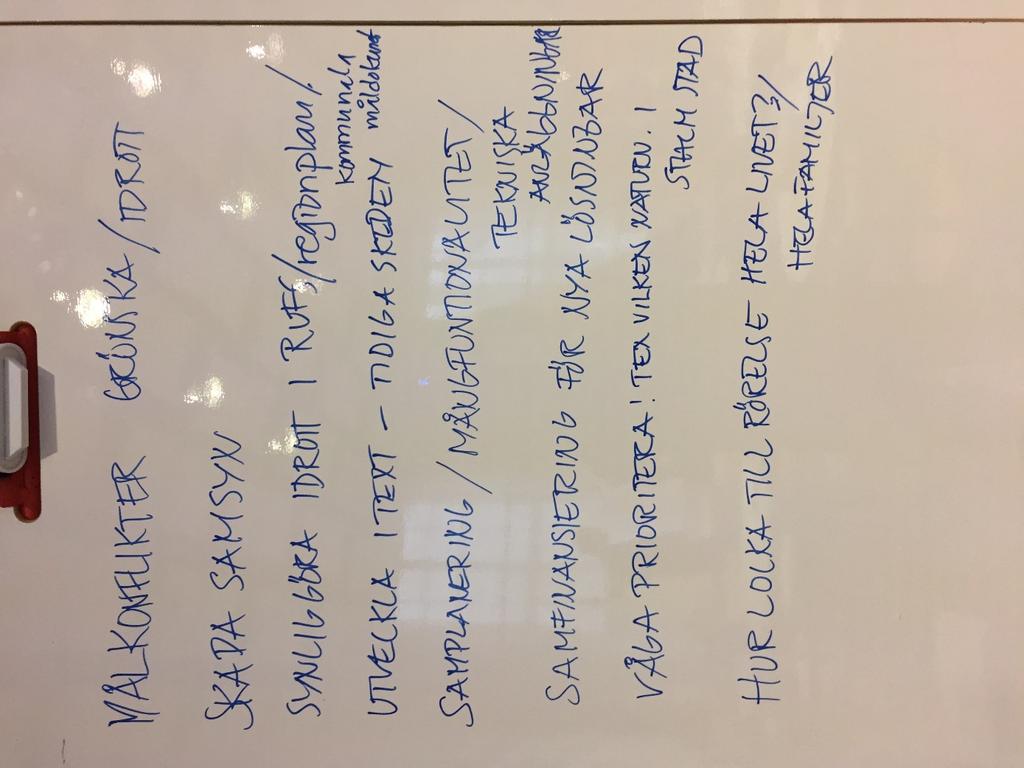 MÅLKONFLIKTER GRÖNSKA/IDROTT
SKAPA SAMSYN
SYNLIGGÖRA IDROTT I RUFS/regionplan/
kommunala
UTVECKLA I TEXT - TIDIGA SKEDEN
SAMPLANERING/MÅNGFUNTIONALITET/
TEKNISKA
SAMFINANSIERING FÖR NYA LÖSNINGAR
VÅGA PRIORITERA! TEX VILKEN NATUR. I
STHLM STAD
HUR LOCKA TILL RÖRELSE HELA LIVET?/
HELA FAMILJER